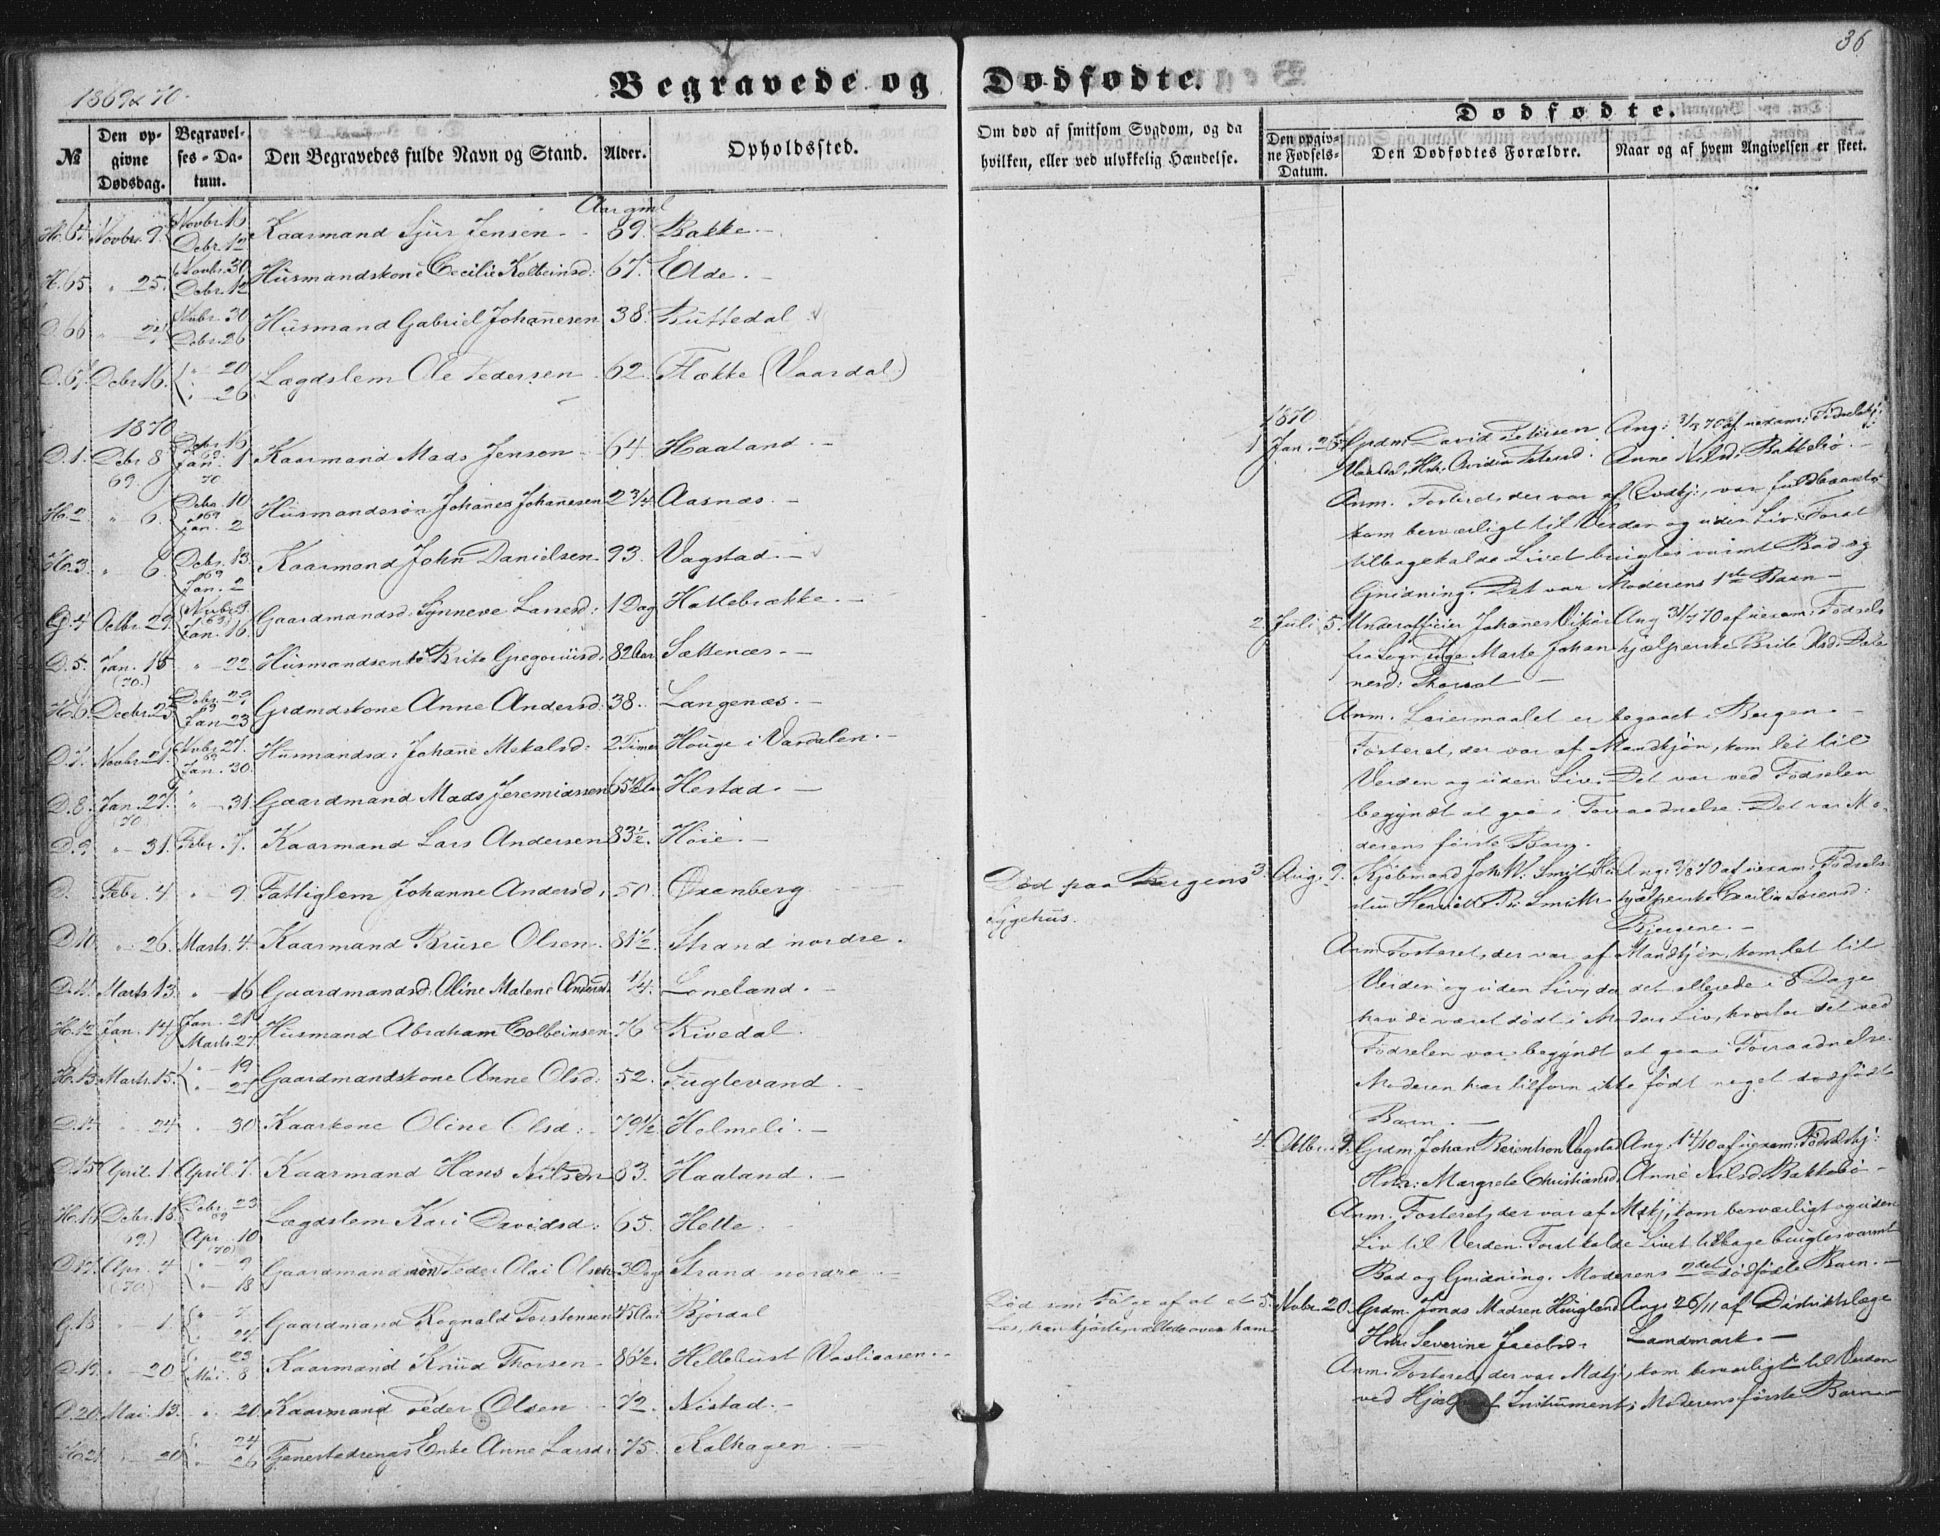 36
1869 & 70.
Begravede og Dødfødte.
Dødfødte.
№
Den opgivne Dødsdag.
Begravelses-Datum.
Den Begravedes fulde Navn og Stand.
Alder.
Opholdssted.
Om død af smitsom Sygdom, og da hvilken, eller ved ulykkelig Hændelse.
Den opgivne Fødsels-Datum.
Den Dødfødtes Forældre.
Naar og af hvem Angivelsen er skeet.
Aar gml
Novbr. 9. Novbr. 16 Debr. 12 Kaarmand Sjur Jensen 69. Bakke
H. 65 " 25. Novbr. 30 Debr. 12 Husmandskone Cecilie Kolbeinsd: 67. Elde.
D. 66 Debr. 26 Husmand Gabriel Johannesen 38.
Debr. 16. " 20 " 26 Lægdslem Ole Pedersen 62 Flække (Vaardal)
1870
D. 1. Debr 8 69. Debr. 16 69 Jan. 1 70 Kaarmand Mads Jenson 64 Haaland.
Hv. 2 " 6. Debr. 10 69 Jan. 2 Husmandssøn Johannes Johannesen 2 3/4 Aasnæs.
Hv. 3 " 6. Debr. 13. 69 Jan. 2 Kaarmand John Danielsen 93. Vagstad.
G. 4 Octbr. 29. Jan. 16. Gaardmandsd: Synneve Larsd: 1 Dag Hattebrække.
D. 5. Jan. 15 (70.) " 22 Brite Gregoriusd: 82 Aar Sættenæs.
Hv. 6. Decbr. 23 Jan. 23 Grdmdskone Anne Andersd: 38. Langenæs.
D. 7. Novbr. 21. Novbr. 27. 69 Jan. 30. Husmandsd: Johanne Mekalsd: 2 Timer Houge i Vardalen.
D. 8. Jan. 27. (70) " 31. Gaardmand Mads Jeremiassen 65 1/2 Aar Hestad.
D. 9. " 31. Febr. 7. Kaarmand Lars Andersen 83 1/2. Høie.
D. Febr. 4 " 9 Fattiglem Johanne Andersd: 50. Oxenberg Død paa Bergens Sygehus.
D. 10. " 26. Marts. 4. Kaarmand Bruse Olsen 81 1/2. Strand nordre.
D. 11. Marts 13. " 16 Gaardmandsd: Oline Malene Andersd: 1/4. Loneland.
H. 12 Jan. 14. Jan. 21 Marts. 27. Husmand Abraham Colbeinsen 76 Rivedal.
H. 13 Marts 15. " 19 " 27 Gaardmandskone Anne Olsd: 52. Fuglevand
D. 14 " 24 " 30 Kaarkone Oline Olsd: 79 1/2 Holmeli.
D. 15 April. 1. April. 7. Kaarmand Hans Nilsen 83. Haaland.
H. 16 Debr. 16 69.) Debr. 23 69 Apr. 10 (70) Lægdslem Kari Davidsd: 65. Hette.
D. 17. Apr. 4 (70.) " 9 " 18 Gaardmandssøn Peder Olai Olsen 3 Dage Strand nordre
G. 18 " 1. Gaardmand Rognald Torstensen 45 Aar Bjordal Død som Følge af at et Læs, han kjørte, væltede over ham
D. 19. " 20 " 23 Mai. 8 Kaarmand Knud Thorsen 86 1/2. Hellebust (Vasliaasen.
D. 20. Mai. 13. " 20 Kaarmand Peder Olsen 72. Nistad.
Hv. 21 " 20 " 24 " 26 Tjenestedrengs Enke Anne Larsd: 75. Kalhagen.
1870
1 Jan. Grdm: David Petersen Ang: 3/2 70 af exam: Fødselshj:
Anne Nilsd: Bakkebø.
Anm. Fosteret, der var af Qvdkj:, var fuldbaaret,
kom besværligt til Verden og uden Liv. Forat
tilbagekalde Livet brugtes varmt Bad og
Gnidning. Det var Moderens 1ste Barn
2. Juli 5. Underofficier Johannes Ang af exam: Fødsels
Pige Marte Johan hjælperske Brite
nesd:
Anm. Leiermaalet er begaaet i Bergen.
Fosteret, der var af Mandkjøn, kom let til
Verden og uden Liv. Det var ved Fødselen
begyndt at gaa i Forraadnelse. Det var Mo-
derens første Barn.
3. Aug. 9. Kjøbmand Joh. W. Smit Ang: 9/8 70 af exam: Fødsels-
hjælperske Cecilia Sørensd:
Bjergene.
Anm. Fosteret, der var af Mandkjøn, kom let til
Verden og uden Liv, da det allerede i 8 Dage
havde været dødt i Moders Liv, hvorfor det ved
Fødselen var begyndt at gaa i Forraadnelse.
Moderen har tilforn ikke født noget dødfødt
Barn.
4 Octbr. 9. Grdm. Johan Berentsen Vagstad Ang. af exam: Fødselshj:
Hstr: Margrete Christiansd: Anne Nilsd: Bakkebø
Anm. Fosteret, der var af Mkj, kom besværligt og uden
Liv til Verden. Forat kalde Livet tilbage brugtes varmt
Bad og Gnidning. Moderens 2det dødfødte Barn.
5. Novbr. 20. Grdm. Jonas Madsen Hougland Ang: 26/11 af Distriktslæge
Hstr: Severine Jacobsd: Landmark.
Anm. Fosteret, der var Mdkj:, kom besværligt til Verden
ved Hjælp af Instrument; Moderens første Barn